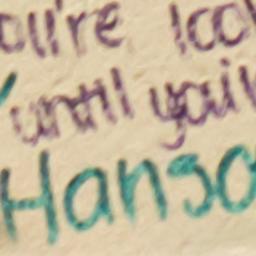 ou're loo
until you'v
Hanso